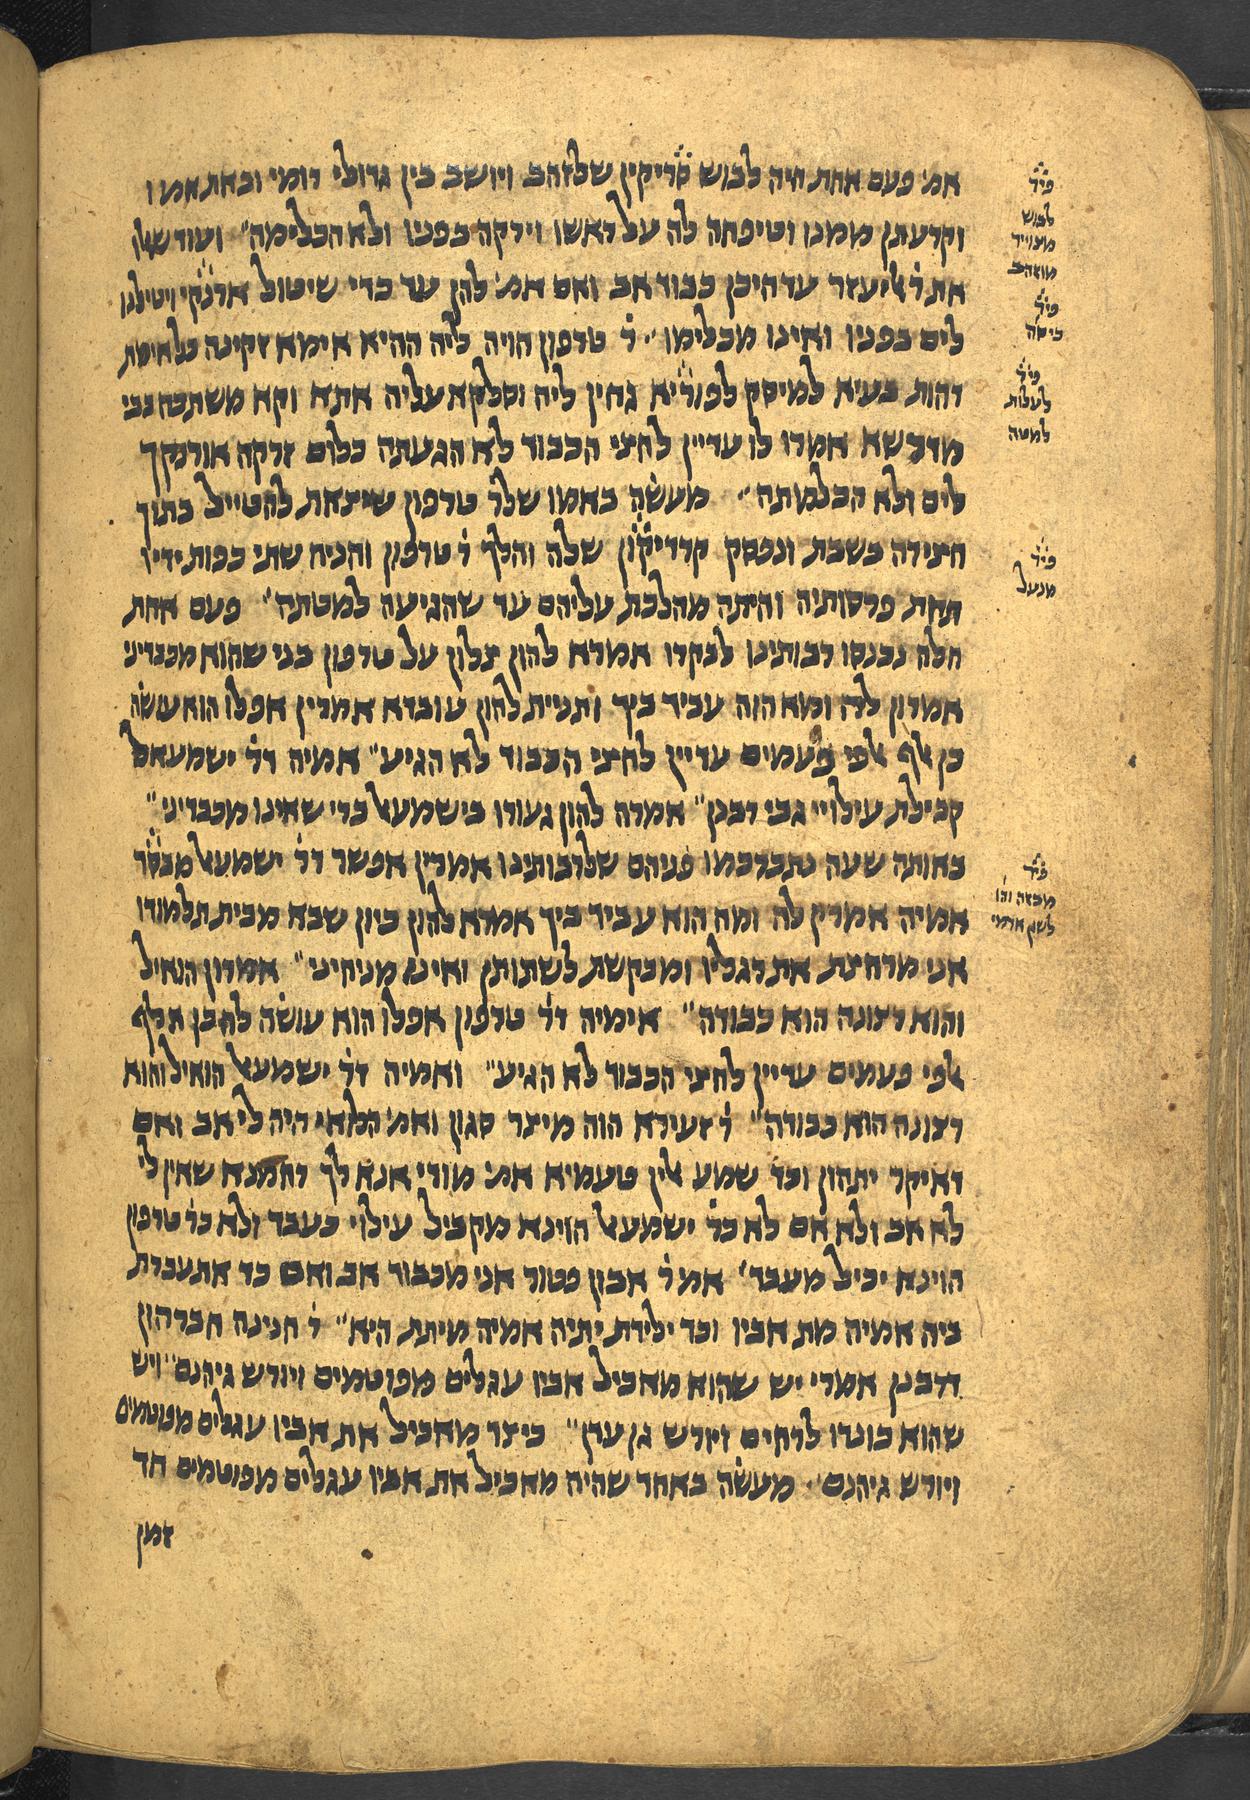 אמ׳ פעם אחת היה לבוש סריקין שלזהב ויושב בין גדולי רומי ובאת אמו
וקרעתן ממנו וטיפחה לה על ראשו וירקה בפניו ולא הכלימה״ ועוד שאלו
את ר׳ אליעזר עד היכן כבוד אב ואם אמ׳ להן עד כדי שיטול ארנקי ויטילנו
לים בפניו ואינו מכלימו״ ר׳ טרפון הויה ליה ההיא אימא זקינה כל אימת
דהות בעיא למיסק לפוריא גחין ליה וסלקא עליה אתא וקא משתבח בבי
מדרשא אמרו לו עדיין לחצי הכבוד לא הגעתה כלום זרקה אורנקך
לים ולא הכלמתה״ מעשה באמו שלר׳ טרפון שיצאת להטייל בתוך
חצירה בשבת ונפסק קרדיקון שלה והלך ר׳ טרפון והניח שתי כפות ידיו
תחת פרסותיה והיתה מהלכת עליהם עד שהגיעה למטתה״ פעם אחת
חלה נכנסו רבותינו לבקרו אמרא להון צלון על טרפון בני שהוא מכבדיני
אמרון לה ומא הוה עביד ביך ותניית להון עובדא אמרין אפלו הוא עושה
כן אלף אלפי פעמים עדיין לחצי הכבוד לא הגיע״ אמיה דר׳ ישמעאל
קבילת עילויי גבי רבנן״ אמרה להון געורו בישמעאל ברי שאינו מכבדיני״
באותה שעה נתכרכמו פניהם שלרבותינו אמרין אפשר דר׳ ישמעאל מבסר
אמיה אמרין לה ומה הוא עביד ביך אמרא להון כיון שבא מבית תלמודו
אני מרחצת את רגליו ומבקשת לשתותן ואינו מניחיני״ אמרון הואיל
והוא רצונה הוא כבודה״ אימיה דר׳ טרפון אפלו הוא עושה לה כן אלף
אלפי פעמים עדיין לחצי הכבוד לא הגיע״ ואמיה דר׳ ישמעאל הואיל והוא
רצונה הוא כבודה״ ר׳ זעירא הוה מיצר סגון ואמ׳ הלואי היה לי אב ואם
דאיקר יתהון וכד שמע אלין טעמיא אמ׳ מודי אנא לך רחמנא שאין לי
לא אב ולא אם לא כר׳ ישמעאל הוינא מקביל עילוי כעבד ולא כר׳ טרפון
הוינא יכיל מעבד׳ אמ׳ ר׳ אבון פטור אני מכבוד אב ואם כד אתעברת
ביה אמיה מת אביו וכד ילידת יתיה אמיה מיתת היא״ ר׳ חנינה חברהון
דרבנן אמרי יש שהוא מאכיל אביו עגלים מפוטמים ויורש גיהנם״ ויש
שהוא כודנו לרחים ויורש גן עדן״ כיצד מאכיל את אביו עגלים מפוטמים
ויורש גיהנם״ מעשה באחד שהיה מאכיל את אביו עגלים מפוטמים חד
זמן
פיר׳
לבוש
מצוייר
מוזהב
פיר׳
כיסה
פיר׳
לעלות
למטה
פיר׳
מנעל
פיר׳
מבזה והו
לשון ארמי